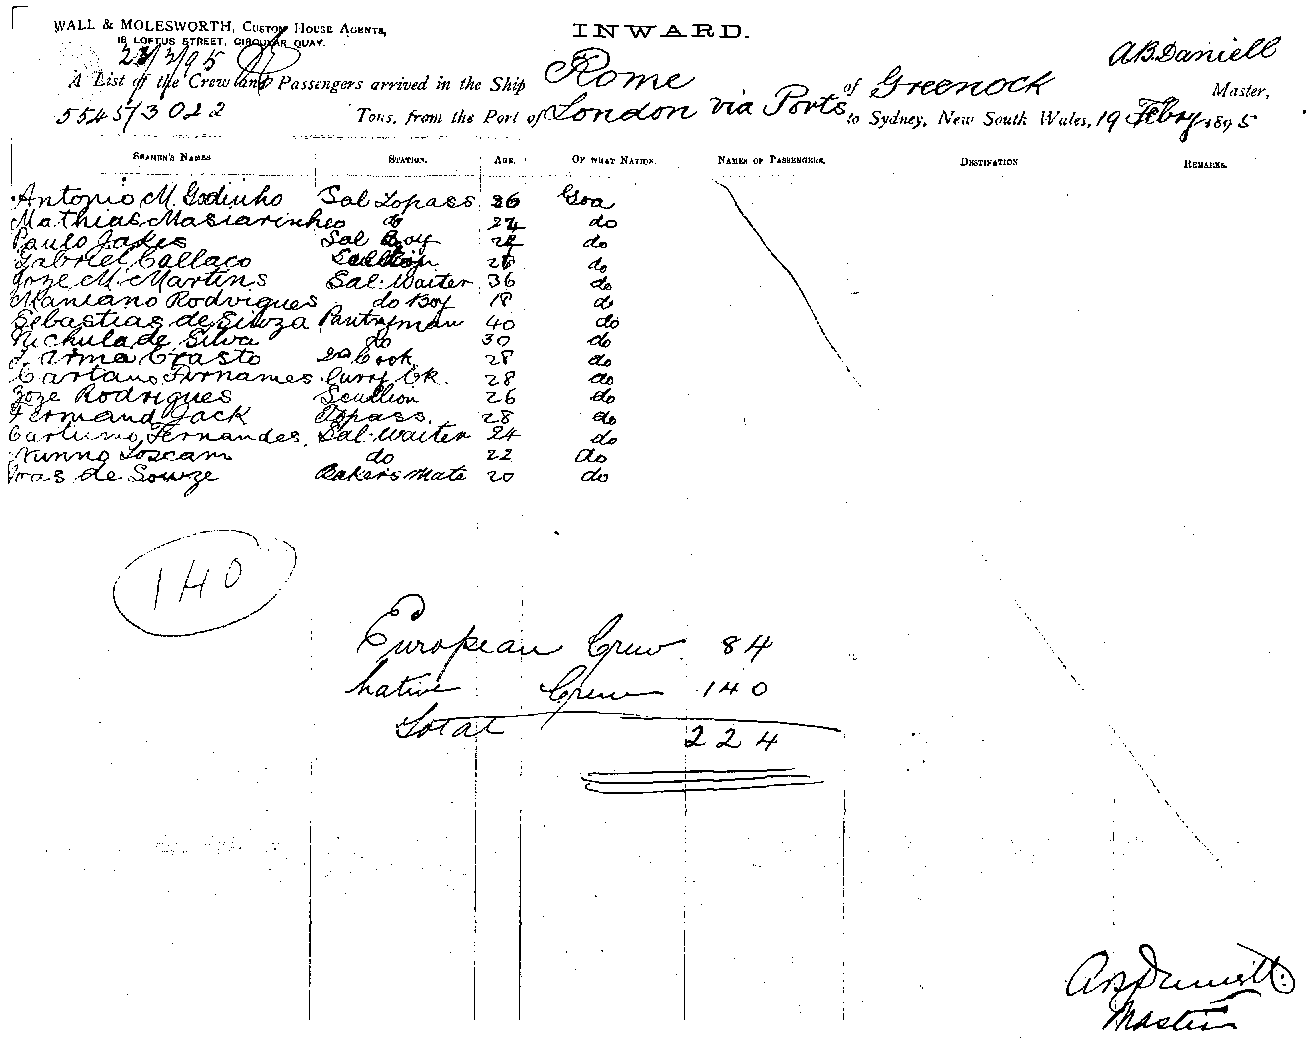 WALL & MOLESWORTH, CUSTOM HOUSE AGENTS,
INWARD.
18 LOFTUS STREET, CIRCULAR QUAY.
/3/95
A List of the Crew and Passengers arrived in the Ship Rome of Greenock A B Daniell Master,
5545/3022 Tons, from the Port of London via Ports to Sydney, New South Wales, 19 Febry 1895
SEAMEN'S NAMES STATION. AGE. OF WHAT NATION. NAMES OF PASSENGERS. DESTINATION REMARKS.
Antonio M. Godinho Sal Topass 36 Goa
Mathias Masiarinheo do 24 do
Paulo Jakes Sal Boy 24 do
Gabriel Collaco Scullion do
Joze M. Martins Sal. Waiter 36 do
Maniano Rodvrigues do Boy 18 do
Sebastias de Siuoza Pantryman 40 do
Nichula de Silva do 30 do
Crasto Cook 28 do
Cartano Firnames Curry Ck. 28 do
Joze Rodrigues Scullion 26 do
Fermand Jack Topass. 28 do
Fernandes. Sal. Waiter 24 do
Nunno Toscam do 22 do
Bras de Souze Bakers Mate 20 do
140
European Crew. 84
Native Crew 140
Total 224
A B Daniell.
Master